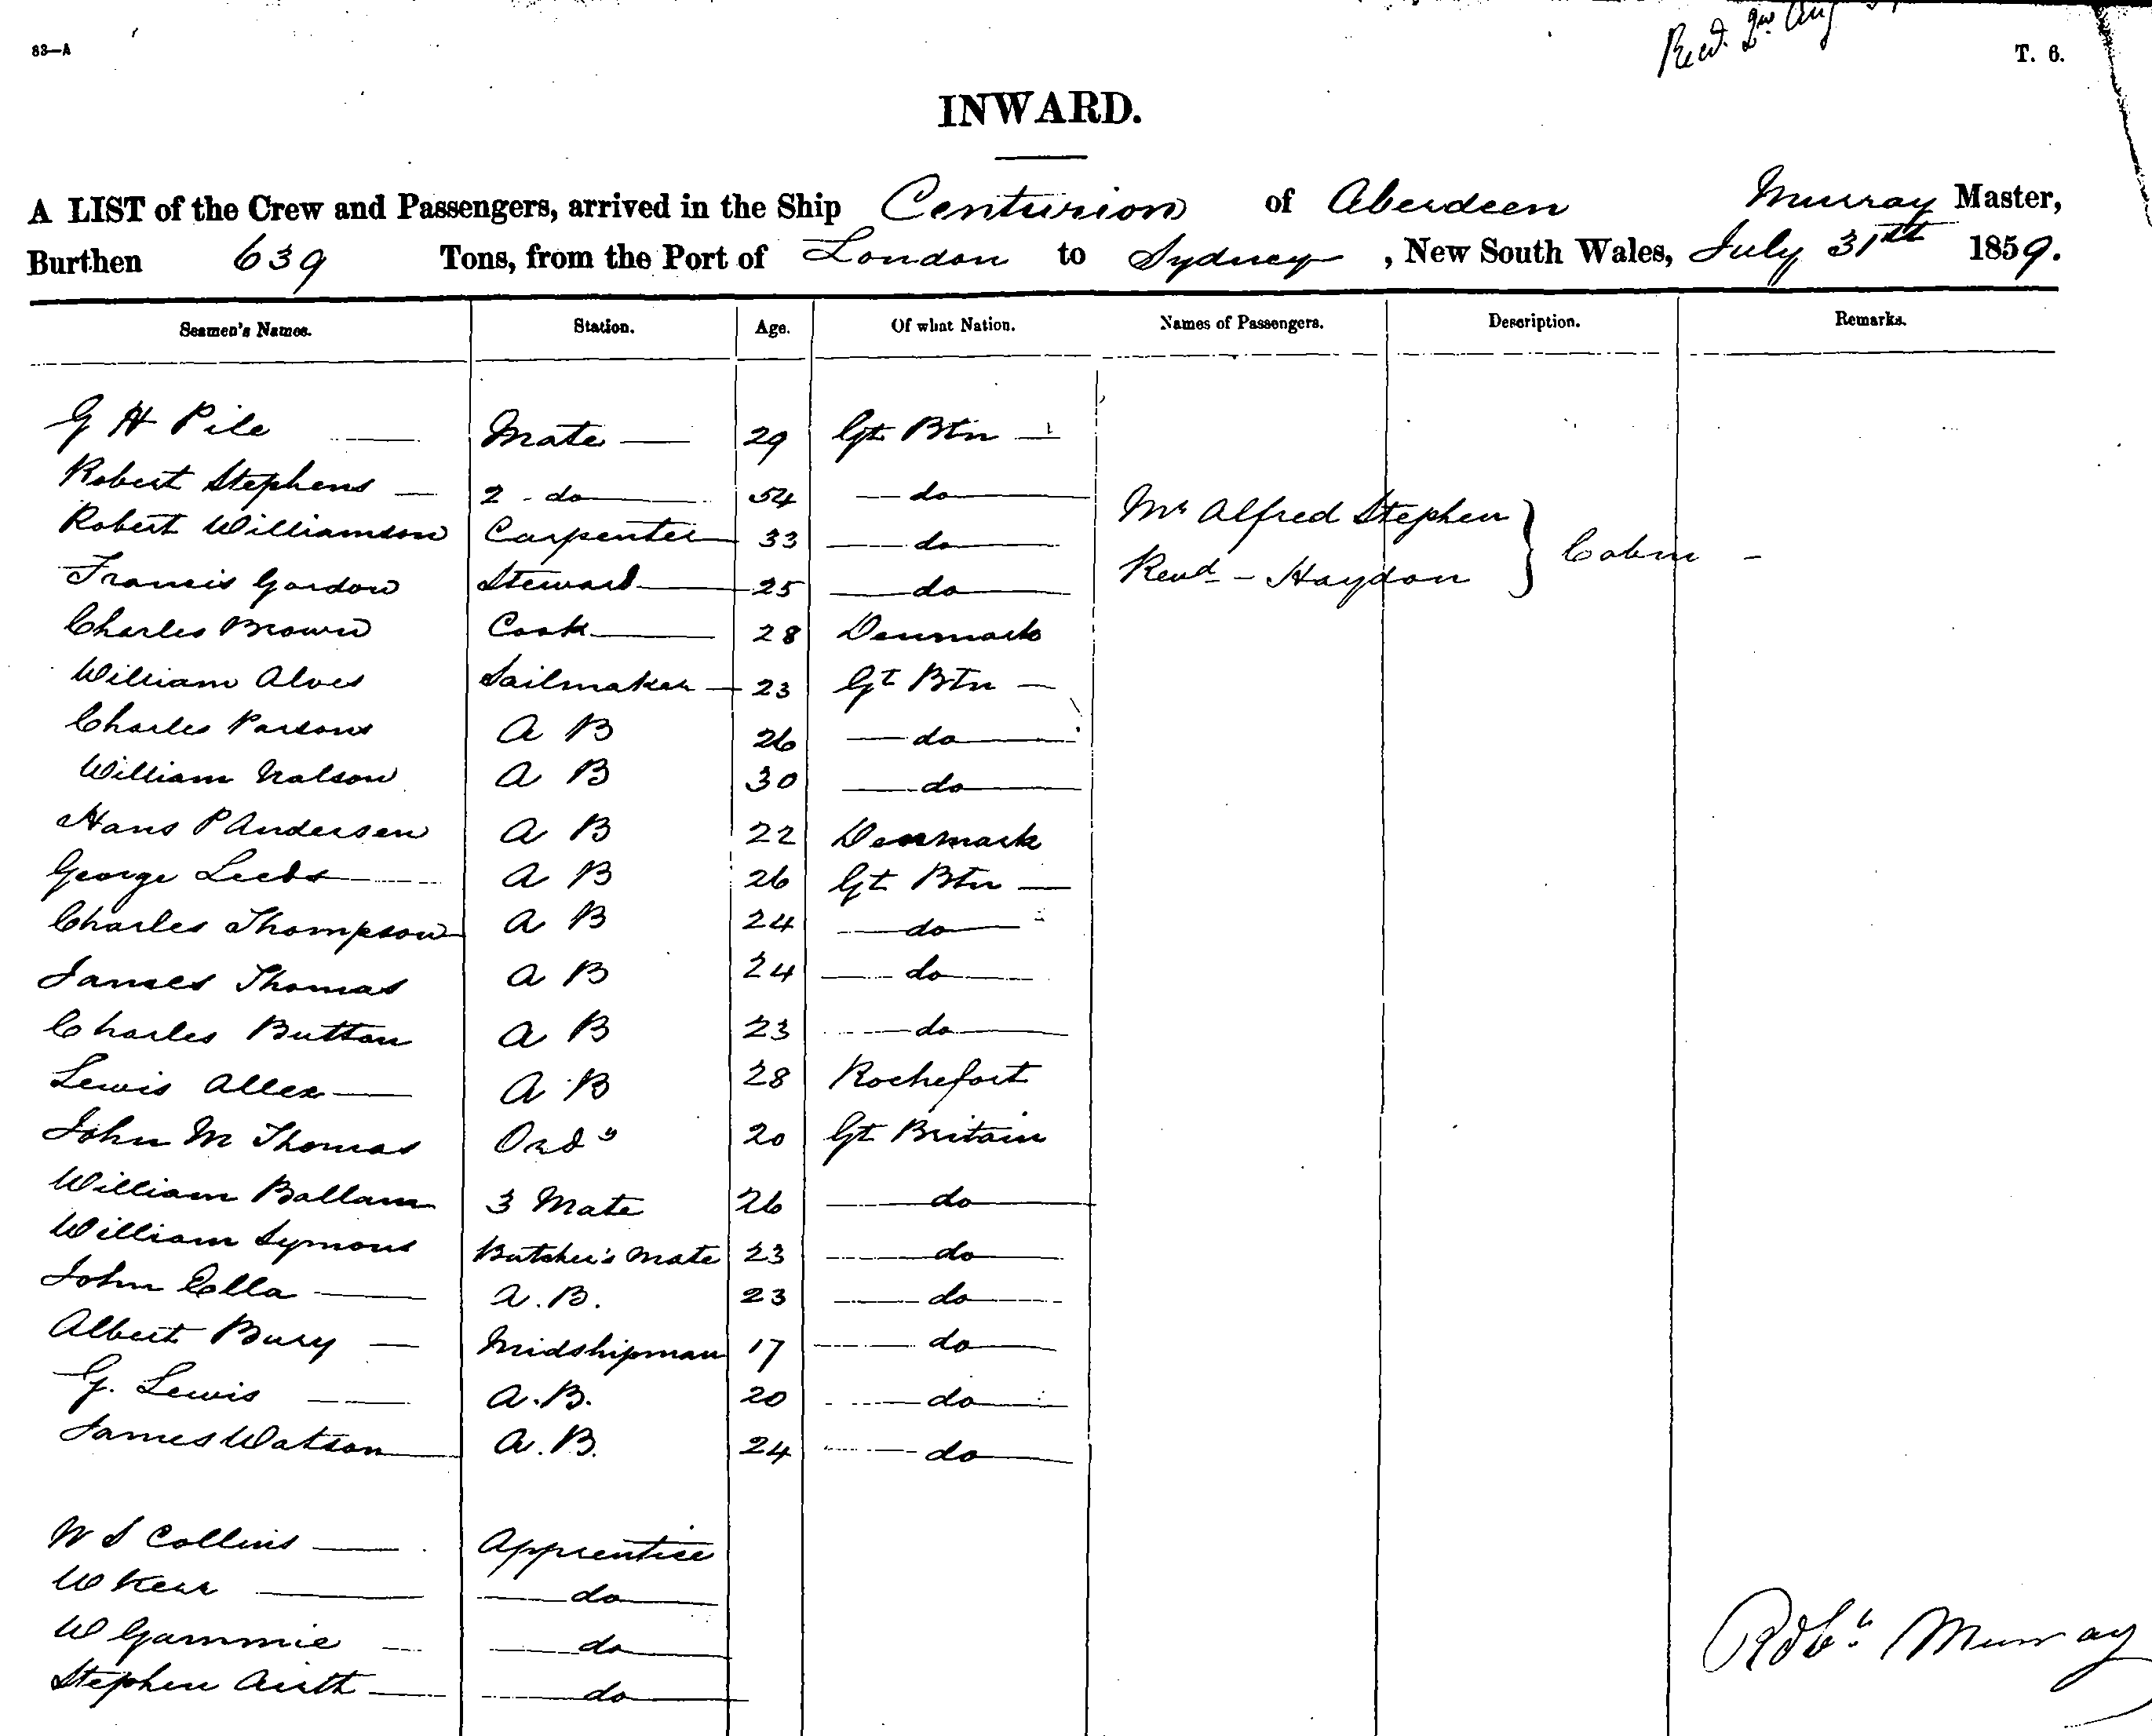 83—A
Recd. 2nd Aug
T. 6.
INWARD.
A LIST of the Crew and Passengers, arrived in the Ship Centurion of Aberdeen Murray Master,
Burthen 639 Tons, from the Port of London to Sydney, New South Wales, July 31st 1859.
Seamen's Names. Station. Age. Of what Nation. Names of Passengers. Description. Remarks.
G H Pile — Mate — 29 Gt Btn —
Robert Stephens — 2 - do 54 — do —
Mr Alfred Stephen } Cabin —
Robert Williamson Carpenter 33 — do —
Revd - Haydon
Francis Gordon Steward — 25 — do —
Charles Brown Cook — 28 Denmark
William Alves Sailmaker — 23 Gt Btn —
Charles Parsons A B 26 — do —
William Nalson A B 30 — do —
Hans P Andersen A B 22 Denmark
George Leebs — A B 26 Gt Btn —
Charles Thompson A B 24 — do —
James Thomas A B 24 — do —
Charles Button A B 23 — do —
Lewis Allex — A B 28 Rochefort
John M Thomas Ordy 20 Gt Britain
William Ballam 3 Mate 26 — do —
William Symons Butcher's Mate 23 — do —
John Ella — A.B. 23 — do —
Albert Bury — Midshipman 17 — do —
G. Lewis — A.B. 20 — do —
James Watson A.B. 24 — do —
W S Collins — Apprentice
W Kerr — do —
W Gammie — do —
Stephen Airth — do —
Robt. Murray